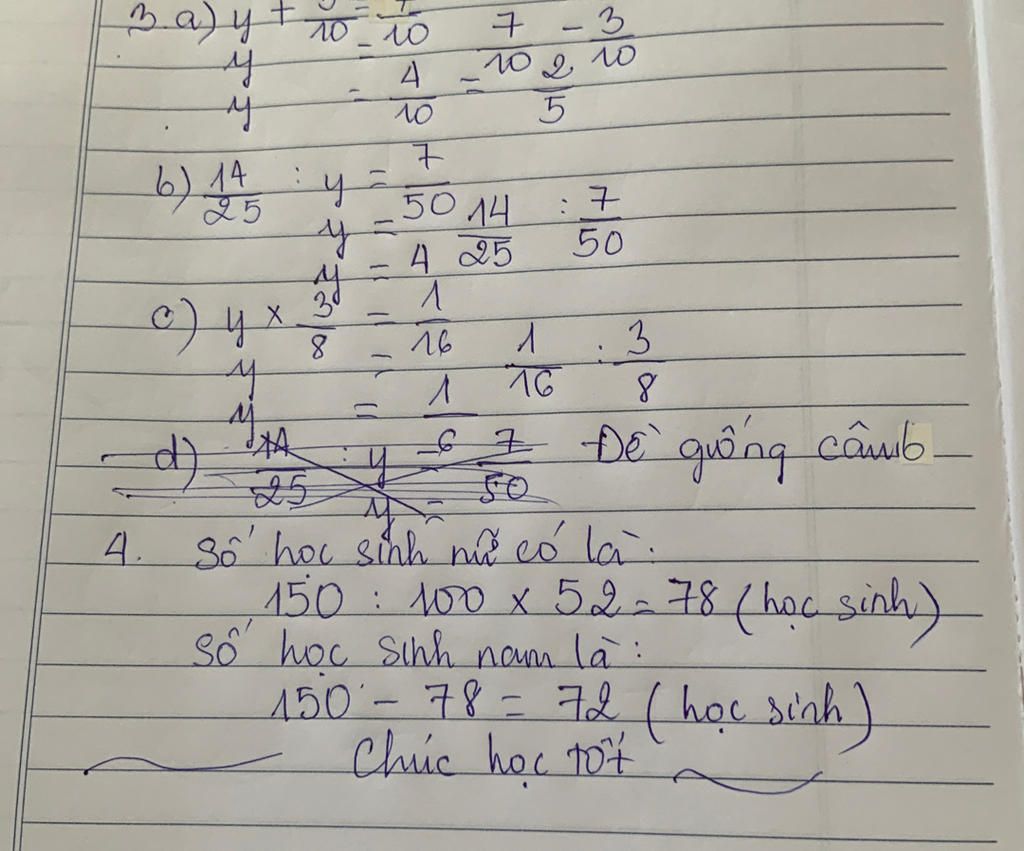 3. a) y + 3/10 = 7/10
y = 7/10 - 3/10
y = 4/10 = 2/5
b) 14/25 : y = 7/50
y = 14/25 : 7/50
y = 4
c) y × 3/8 = 1/16
y = 1/16 : 3/8
y = 1/6
d) 14/25 : y = 7/50 Đề guống câu b
y =
4. Số học sinh nữ có là:
150 : 100 × 52 = 78 (học sinh)
Số học sinh nam là:
150 - 78 = 72 (học sinh)
Chúc học tốt